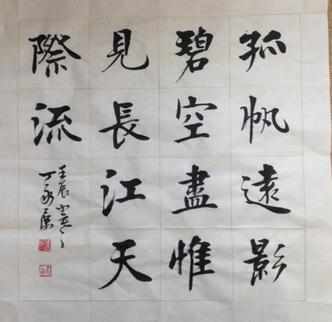 孤帆遠影
碧空盡惟
見長江天
際流
壬辰